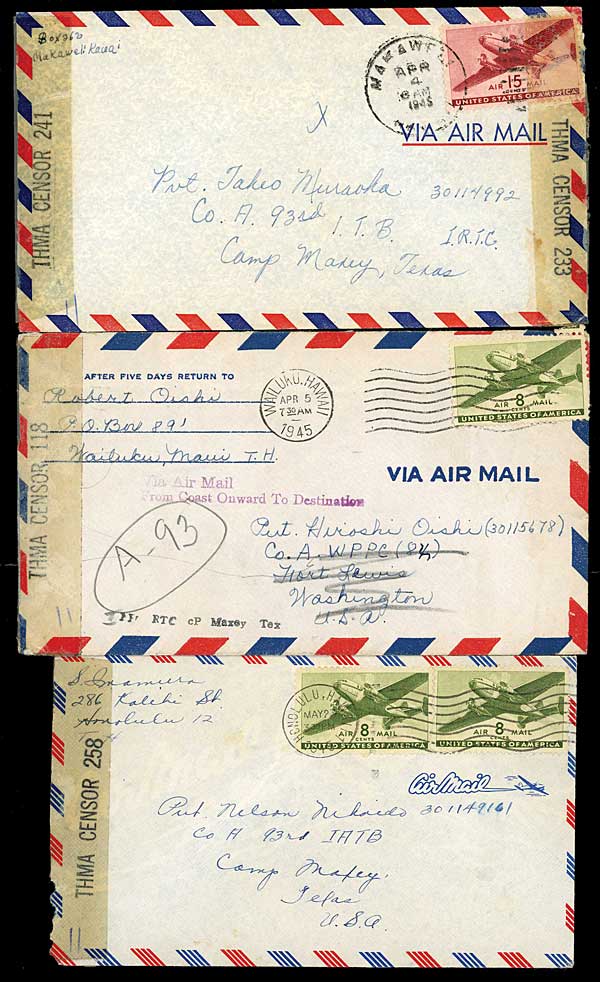 Box 262
Makaweli Kauai
MAKAWELI
APR
4
8 AM
1945
15
CENTS
AIR MAIL
UNITED STATES OF AMERICA
VIA AIR MAIL
THMA CENSOR 241
THMA CENSOR 233
X
Pvt. Takeo Muraoka 30114992
Co. A. 93rd I.T.B. I.R.T.C.
Camp Maxey, Texas
11
AFTER FIVE DAYS RETURN TO
Robert Oishi
P.O. Box 891
Wailuku, Maui T.H.
WAILUKU, HAWAII
APR 5
7 30 AM
1945
AIR 8 MAIL
CENTS
UNITED STATES OF AMERICA
THMA CENSOR 118
VIA AIR MAIL
Via Air Mail
From Coast Onward To Destination
A-93
Pvt. Hiroshi Oishi (30115678)
Co. A. WPPC
Fort Lewis
Washington
U.S.A.
RTC cP Maxey Tex
11
S. Imamura
286 Kalihi St.
Honolulu 12
HONOLULU
MAY
AIR 8 MAIL
CENTS
UNITED STATES OF AMERICA
AIR 8 MAIL
CENTS
UNITED STATES OF AMERICA
THMA CENSOR 258
Air Mail
Pvt. Nelson Nikaido 301149161
Co A 93rd IATB
Camp Maxey,
Texas
U.S.A.
11